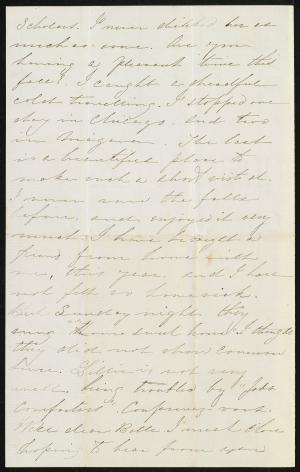 Scholars. I never disliked her as
much as some. Are you
having a pleasant time this
fall? I caught a dreadful
cold travelling. I stopped one
day in Chicago, and two
in Niagara. The last
is a beautiful place to
make such a short visit at.
I never saw the falls
before, and enjoyed it very
much. I have brought a
friend from home with
me, this year, and I have
not felt so homesick.
But Sunday night they
sung "Home sweet home" I thought
they did not show common
sense. is not very
well. being troubled by "Job's
Comforters".
Well dear Belle I must close
hoping to hear from you